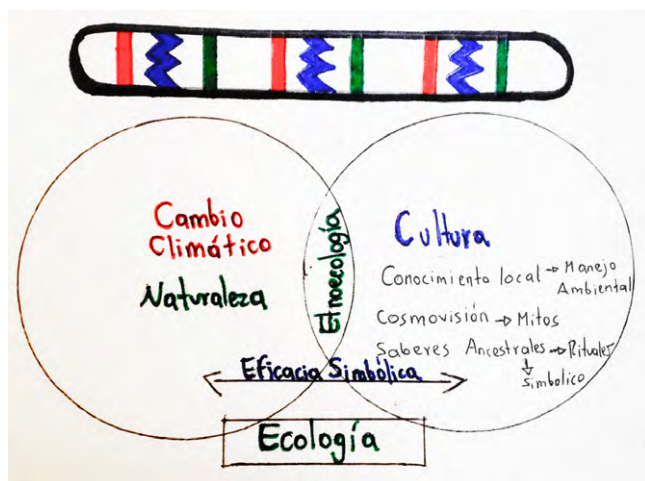 Cambio
Climático
Naturaleza
Etnoecología
Cultura
Conocimiento local → Manejo
Ambiental
Cosmovisión → Mitos
Saberes Ancestrales → Rituales
↓
Simbólico
Eficacia Simbólica
Ecología